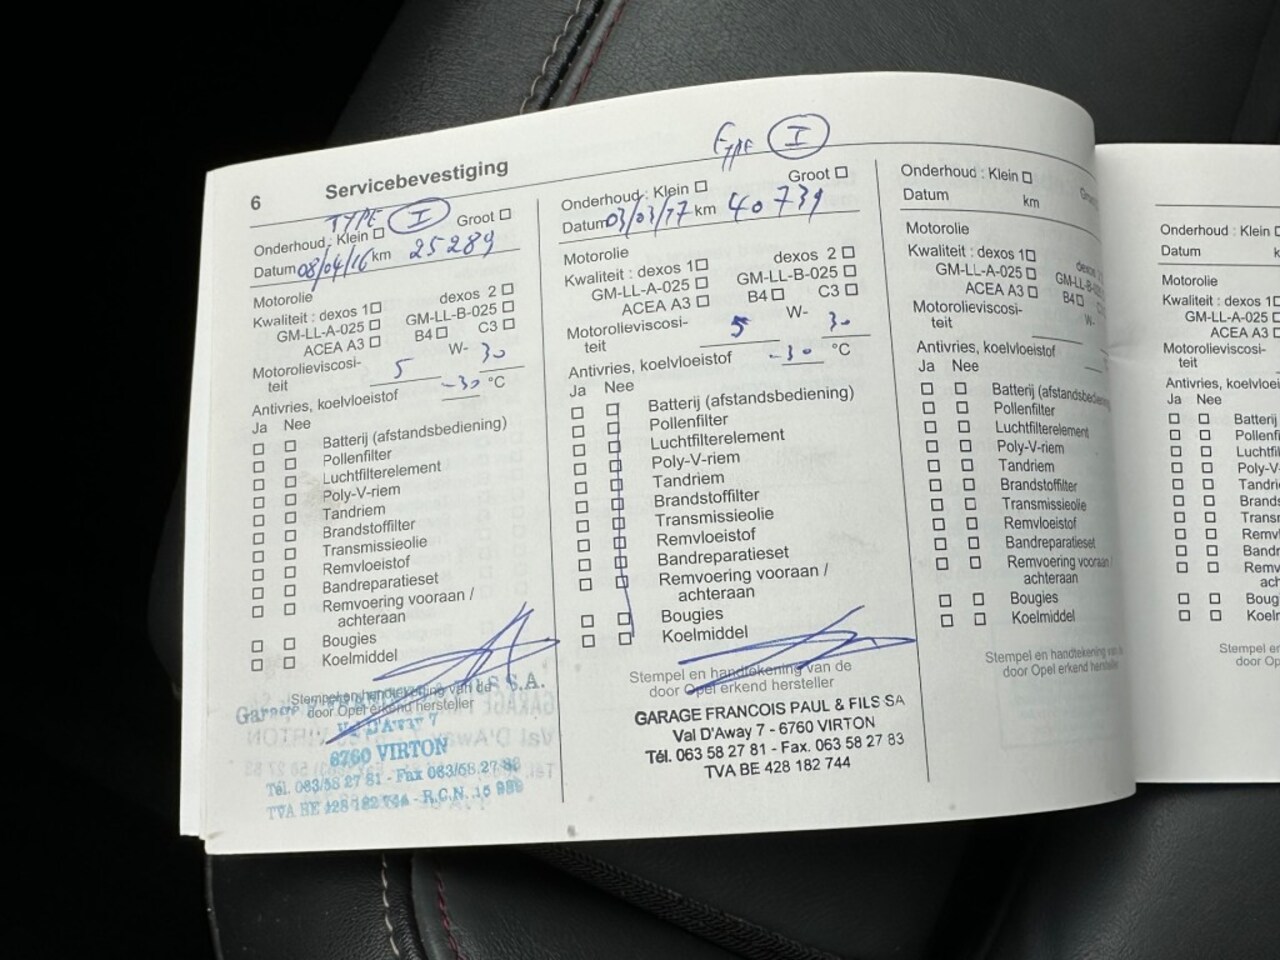 6 Servicebevestiging
TYPE I
Onderhoud : Klein □ Groot □
Datum 08/04/16 km 25289
Motorolie
Kwaliteit : dexos 1 □ dexos 2 □
GM-LL-A-025 □ GM-LL-B-025 □
ACEA A3 □ B4 □ C3 □
Motorolieviscosi-
teit 5 W- 30
Antivries, koelvloeistof -30 °C
Ja Nee
□ □ Batterij (afstandsbediening)
□ □ Pollenfilter
□ □ Luchtfilterelement
□ □ Poly-V-riem
□ □ Tandriem
□ □ Brandstoffilter
□ □ Transmissieolie
□ □ Remvloeistof
□ □ Bandreparatieset
□ □ Remvoering vooraan /
achteraan
□ □ Bougies
□ □ Koelmiddel
Stempel en handtekening van de
door Opel erkend hersteller
Garage S.A.
Val D'Away 7
6760 VIRTON
Tél. 063/58 27 81 - Fax 063/58.27 83
TVA BE 428 182 744 - R.C.N. 15 980
TYPE I
Onderhoud : Klein □ Groot □
Datum 03/03/17 km 40739
Motorolie
Kwaliteit : dexos 1 □ dexos 2 □
GM-LL-A-025 □ GM-LL-B-025 □
ACEA A3 □ B4 □ C3 □
Motorolieviscosi-
teit 5 W- 30
Antivries, koelvloeistof -30 °C
Ja Nee
□ □ Batterij (afstandsbediening)
□ □ Pollenfilter
□ □ Luchtfilterelement
□ □ Poly-V-riem
□ □ Tandriem
□ □ Brandstoffilter
□ □ Transmissieolie
□ □ Remvloeistof
□ □ Bandreparatieset
□ □ Remvoering vooraan /
achteraan
□ □ Bougies
□ □ Koelmiddel
Stempel en handtekening van de
door Opel erkend hersteller
GARAGE FRANCOIS PAUL & FILS SA
Val D'Away 7 - 6760 VIRTON
Tél. 063 58 27 81 - Fax. 063 58 27 83
TVA BE 428 182 744
Onderhoud : Klein □
Datum km
Motorolie
Kwaliteit : dexos 1 □
GM-LL-A-025 □
ACEA A3 □ B4 □
Motorolieviscosi-
teit W-
Antivries, koelvloeistof
Ja Nee
□ □ Batterij (afstandsbediening
□ □ Pollenfilter
□ □ Luchtfilterelement
□ □ Poly-V-riem
□ □ Tandriem
□ □ Brandstoffilter
□ □ Transmissieolie
□ □ Remvloeistof
□ □ Bandreparatieset
□ □ Remvoering vooraan
achteraan
□ □ Bougies
□ □ Koelmiddel
Stempel en handtekening
door Opel erkend
Onderhoud : Klein □
Datum
Motorolie
Kwaliteit : dexos 1 □
GM-LL-A-025
ACEA A3
Motorolieviscosi-
teit
Antivries, koelvloeistof
Ja Nee
□ □ Batterij
□ □ Pollenfil
□ □ Luchtfil
□ □ Poly-V
□ □ Tandri
□ □ Brands
□ □ Transm
□ □ Remvl
□ □ Bandre
□ □ Remv
ach
□ □ Boug
□ □ Koeln
Stempel en
door Opel